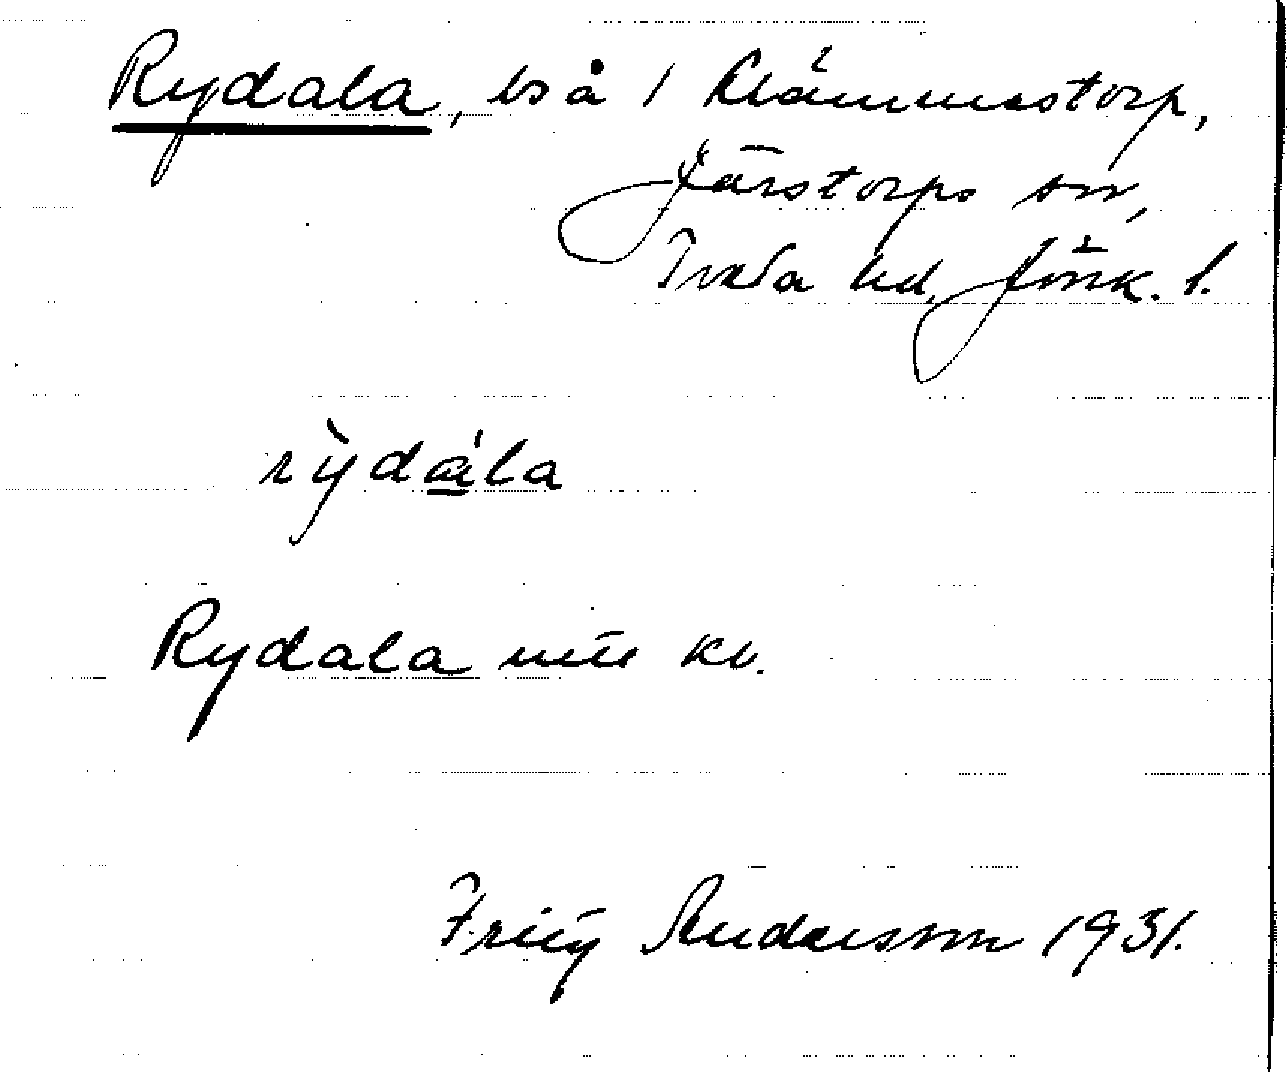 Rydala, bs å 1 Klämmestorp,
Järstorps sn,
Tveta hd, Jönk. l.
rỳdála
Rydala mtl kv.
Fritz Andersson 1931.